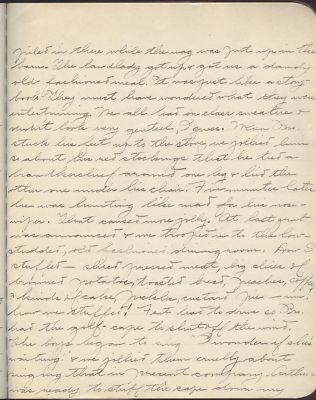 piled in there while the nag was put up in the
barn. The landlady got up & got us a dandy
old fashioned meal. It was just like a story-
book. They must have wondered what they were
entertaining. We all had on class sweaters &
didn't look very genteel, I guess. When
stuck his feet up to the stove, we jollied him
so about his red stockings that he tied a
handkerchief around one leg & hid the
other one under his chair. Five minutes later
he was hunting like mad for his nose-
wiper. That caused more jolly. At last grub
was announced & we trooped in to the low-
studded, old fashioned dining room. How I
stuffed — sliced pressed meat, big slices of
browned potatoes, toasted bread, peaches, coffee,
2 kinds of cake, pickles, custard pie – um!
how we stuffed! Fat had to drive so
had the golf-cape to shut off the wind.
The boys began to sing "I wonder if she's
waiting" & we jollied them cruelly about
singing that in present company.
was ready to stuff the cape down my